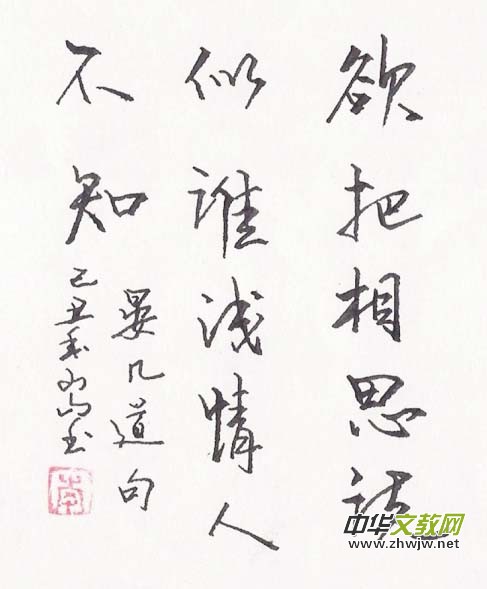 欲把相思说
似谁浅情人
不知
晏几道句
己丑
中华文教网
www.zhwjw.net